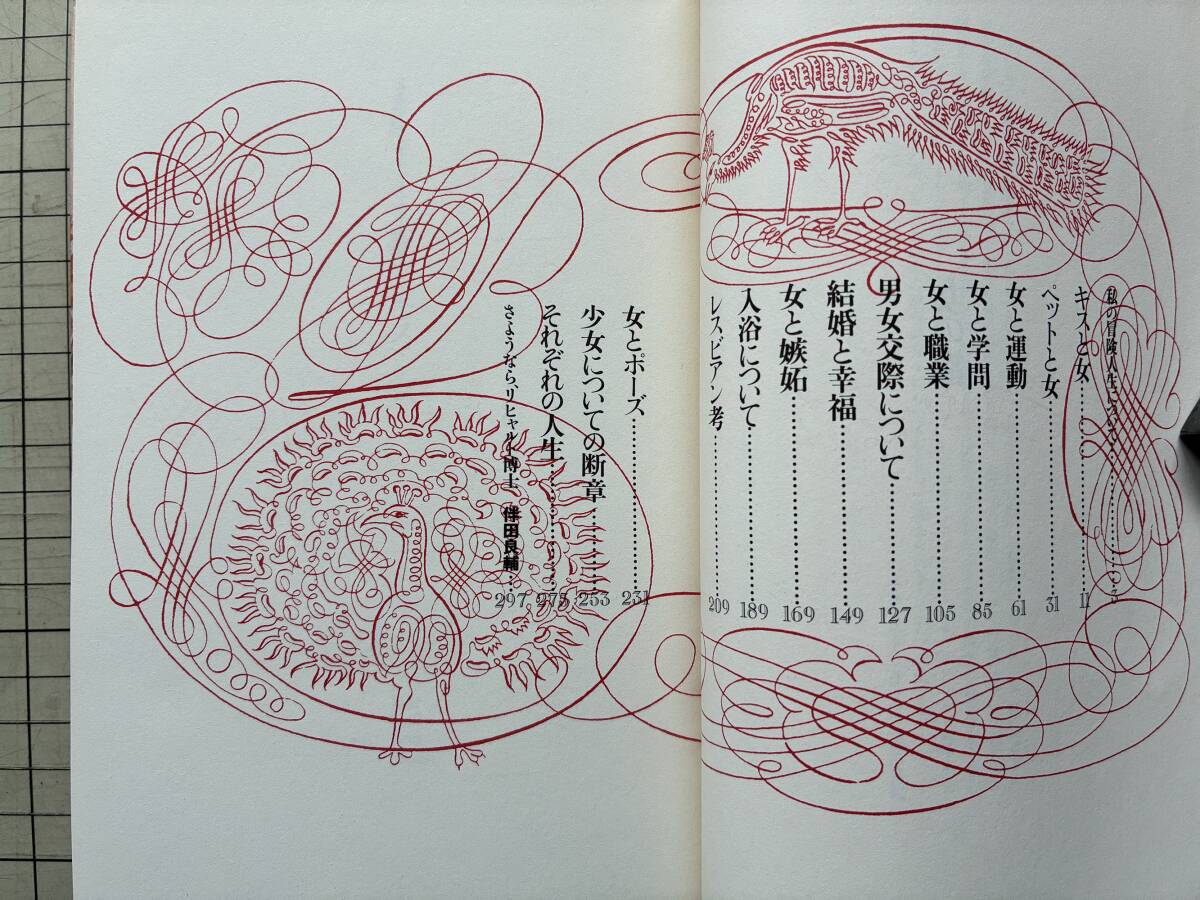 私の冒険人生について……
キスと女……11
ペットと女……31
女と運動……61
女と学問……85
女と職業……105
男女交際について……127
結婚と幸福……149
女と嫉妬……169
入浴について……189
レスビアン考……209
女とポーズ……231
少女についての断章……253
それぞれの人生……275
さようなら、リヒャルト博士 伴田良輔…297